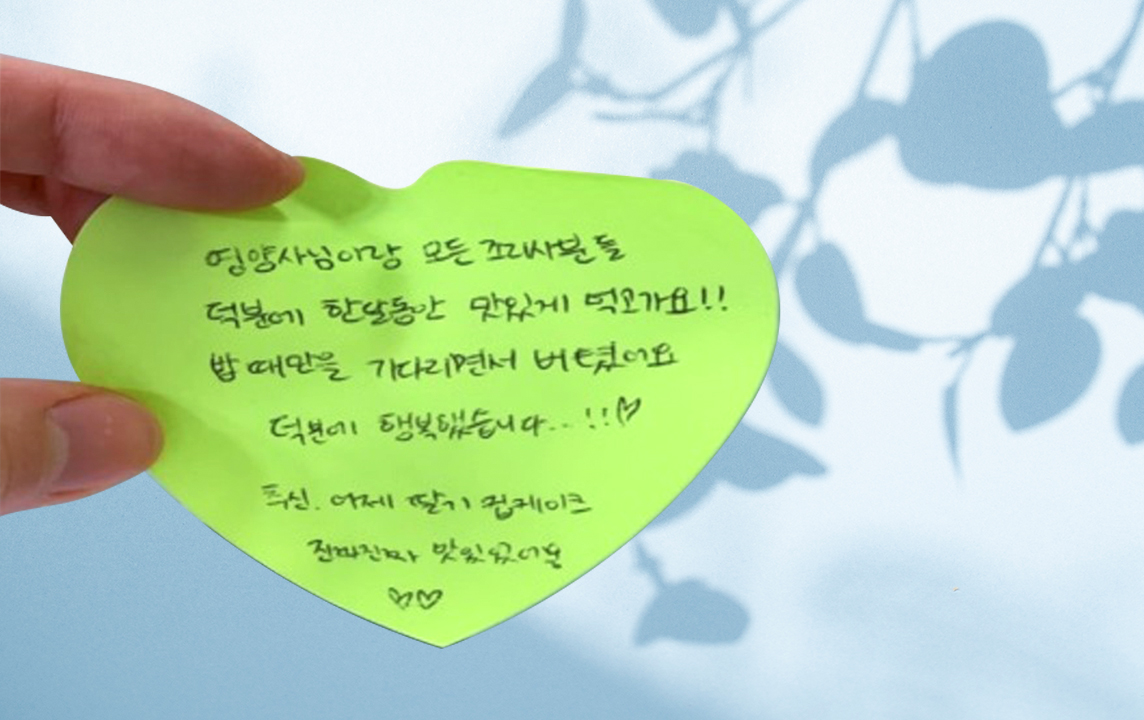 영양사님이랑 모든 조리사분들
덕분에 한달동안 맛있게 먹고가요!!
밥 때만을 기다리면서 버텼어요
덕분에 행복했습니다..!!♡
추신. 어제 딸기 컵케이크
진짜진짜 맛있었어용
♡♡